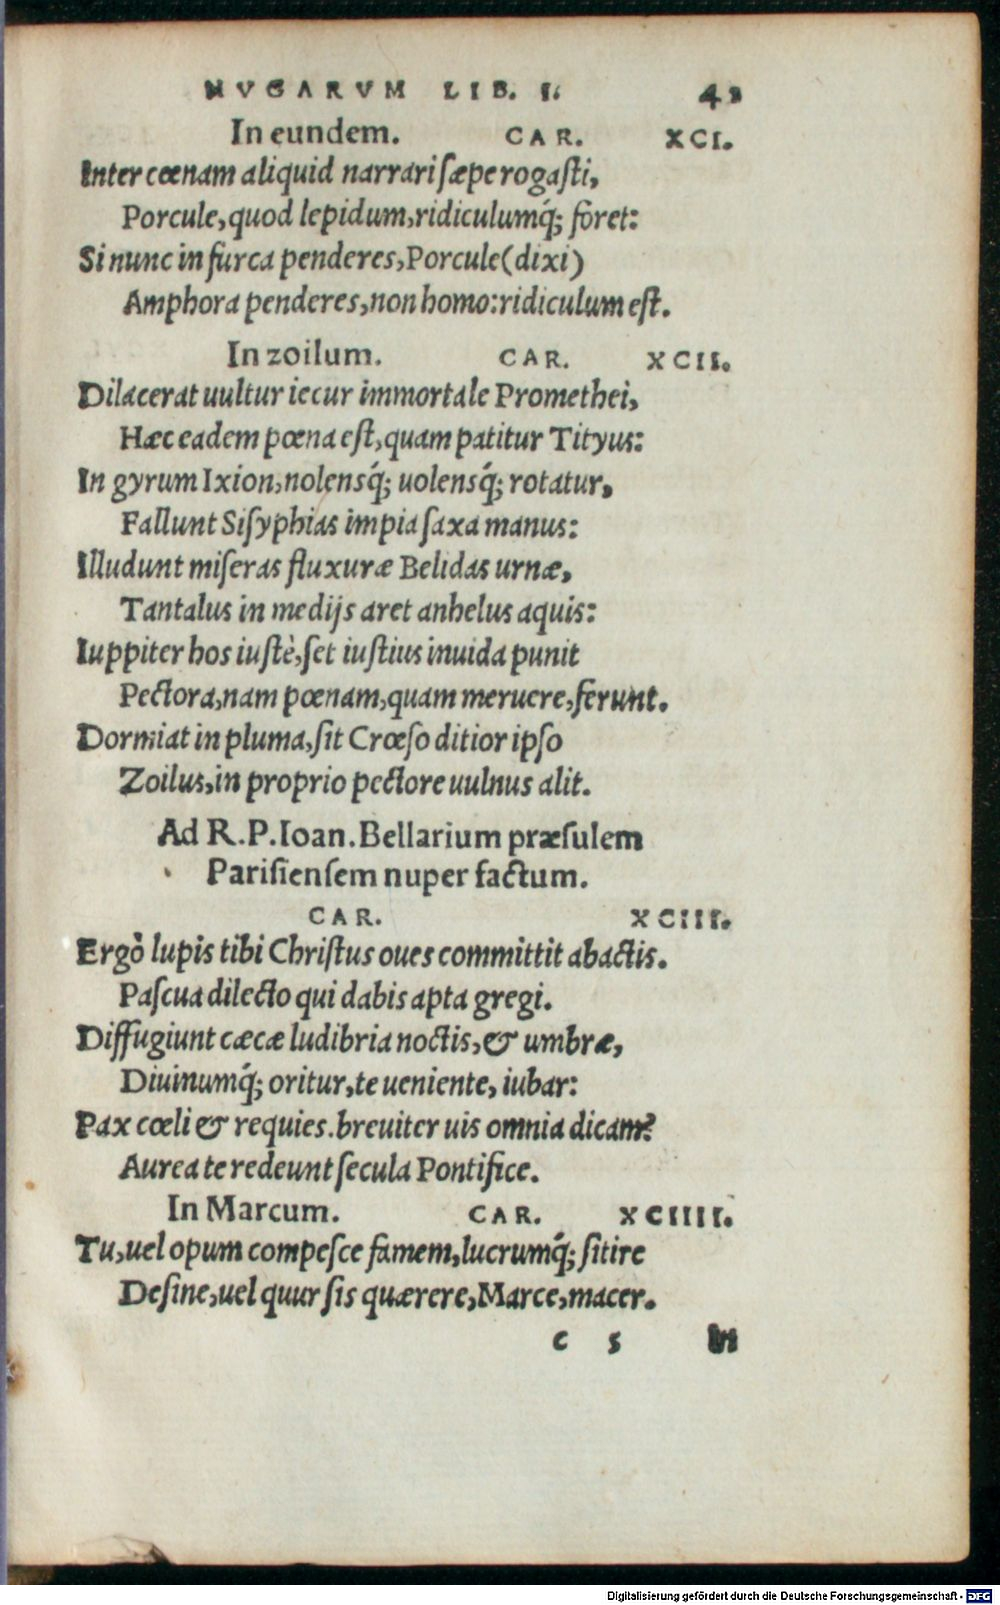 NVGARVM LIB. I. 42
In eundem. CAR. XCI.
Inter cœnam aliquid narrari sæpe rogasti,
Porcule, quod lepidum, ridiculumq́; foret:
Si nunc in furca penderes, Porcule (dixi)
Amphora penderes, non homo: ridiculum est.
In zoilum. CAR. XCII.
Dilacerat uultur iecur immortale Promethei,
Hæc eadem pœna est, quam patitur Tityus:
In gyrum Ixion, nolensq́; uolensq́; rotatur,
Fallunt Sisyphias impia saxa manus:
Illudunt miseras fluxuræ Belidas urnæ,
Tantalus in medijs aret anhelus aquis:
Iuppiter hos iustè, set iustius inuida punit
Pectora, nam pœnam, quam meruere, ferunt.
Dormiat in pluma, sit Crœso ditior ipso
Zoilus, in proprio pectore uulnus alit.
Ad R. P. Ioan. Bellarium præsulem
Parisiensem nuper factum.
CAR. XCIII.
Ergò lupis tibi Christus oues committit abactis.
Pascua dilecto qui dabis apta gregi.
Diffugiunt cæcæ ludibria noctis, & umbræ,
Diuinumq́; oritur, te ueniente, iubar:
Pax cœli & requies. breuiter uis omnia dicam?
Aurea te redeunt secula Pontifice.
In Marcum. CAR. XCIIII.
Tu, uel opum compesce famem, lucrumq́; sitire
Desine, uel quur sis quærere, Marce, macer.
c 5 In
Digitalisierung gefördert durch die Deutsche Forschungsgemeinschaft - DFG